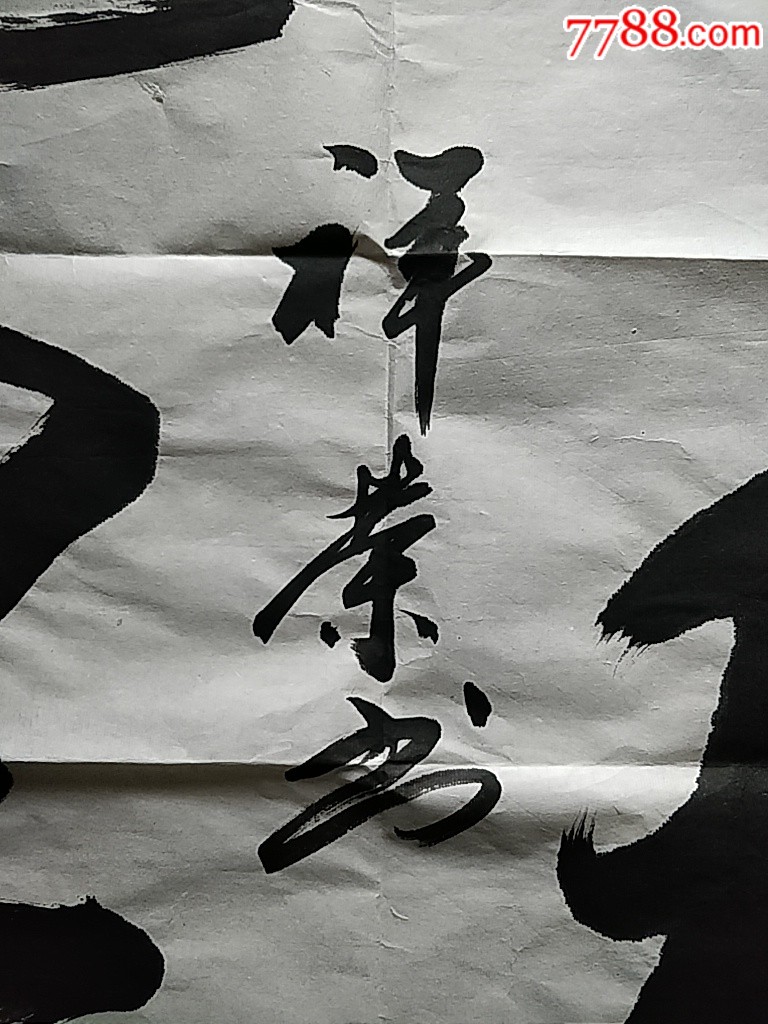 7788.com
祥荣书